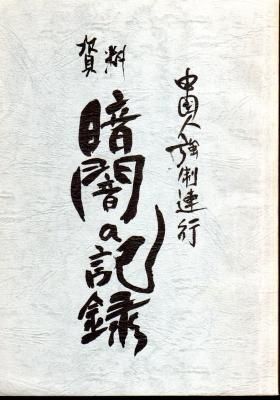 中国人強制連行
資料
暗闇の記録